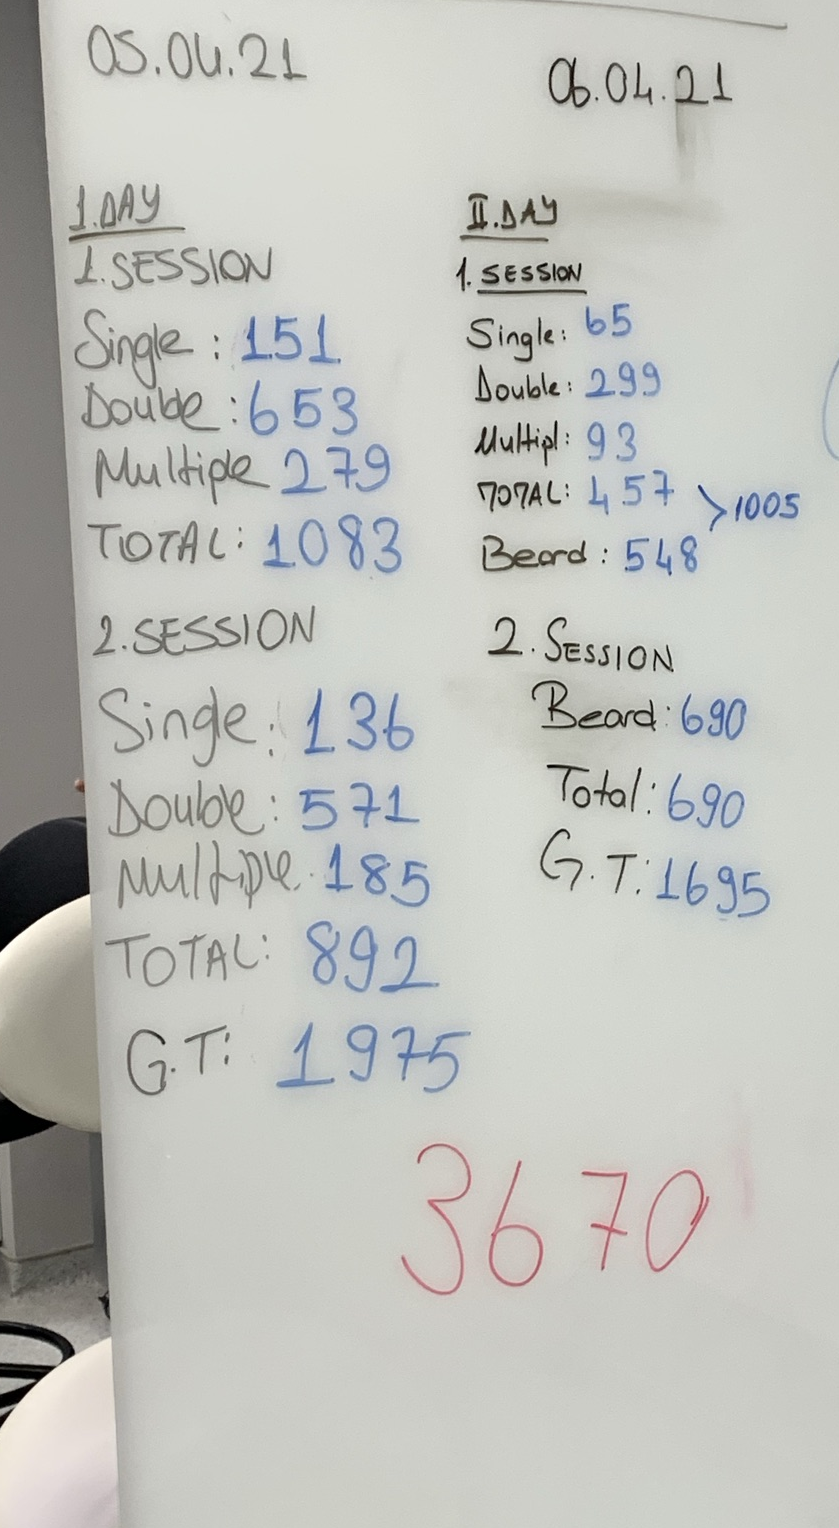 05.04.21
1.DAY
1.SESSION
Single: 151
Double: 653
Multiple 279
TOTAL: 1083
2.SESSION
Single: 136
Double: 571
Multiple. 185
TOTAL: 892
G.T: 1975
06.04.21
II.DAY
1. SESSION
Single: 65
Double: 299
Multipl: 93
TOTAL: 457 >1005
Beard: 548
2. SESSION
Beard: 690
Total: 690
G.T: 1695
3670